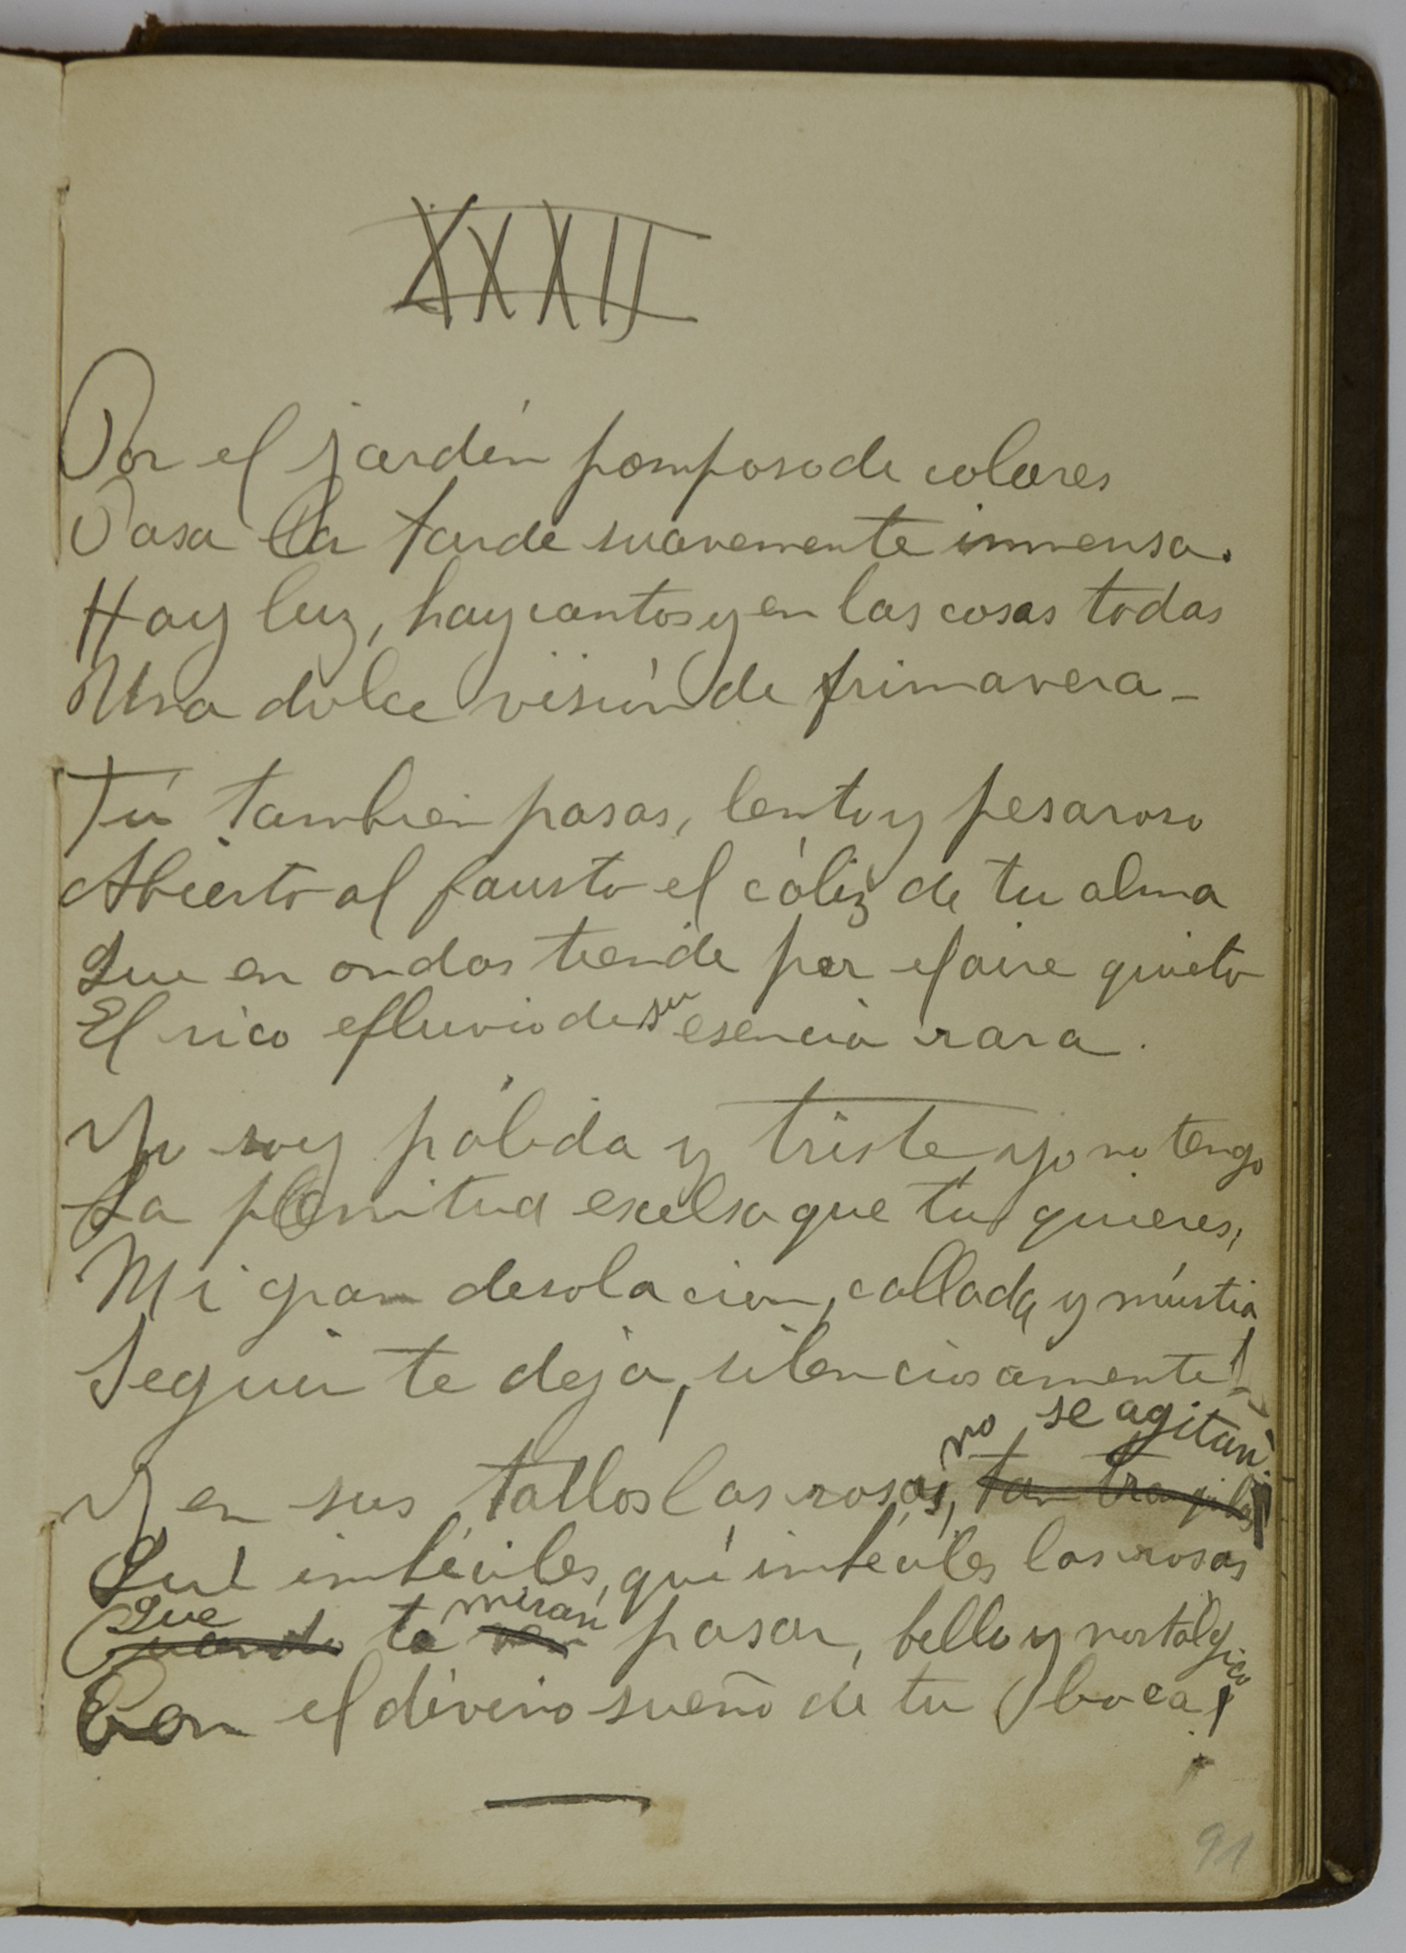 XXXII
Por el jardín pomposo de colores
Pasa la tarde suavemente inmensa.
Hay luz, hay cantos y en las cosas todas
Una dulce visión de primavera_
Tú tambien pasas, lento y pesaroso
Abierto al fausto el cáliz de tu alma
Que en ondas tiende por el aire quieto
El rico efluvio de su esencia rara.
Yo soy pálida y triste, yo no tengo
La plenitud excelsa que tú quieres,
Mi gran desolacion, callada y mústia
Seguir te deja, silenciosamente!
no se agitan
Y en sus tallos las rosas, tan tranquilas
Qué imbéciles, qué imbéciles las rosas
Que miran
Cuando te ven pasar, bello y nostálgico
Con el divino sueño de tu boca!
91